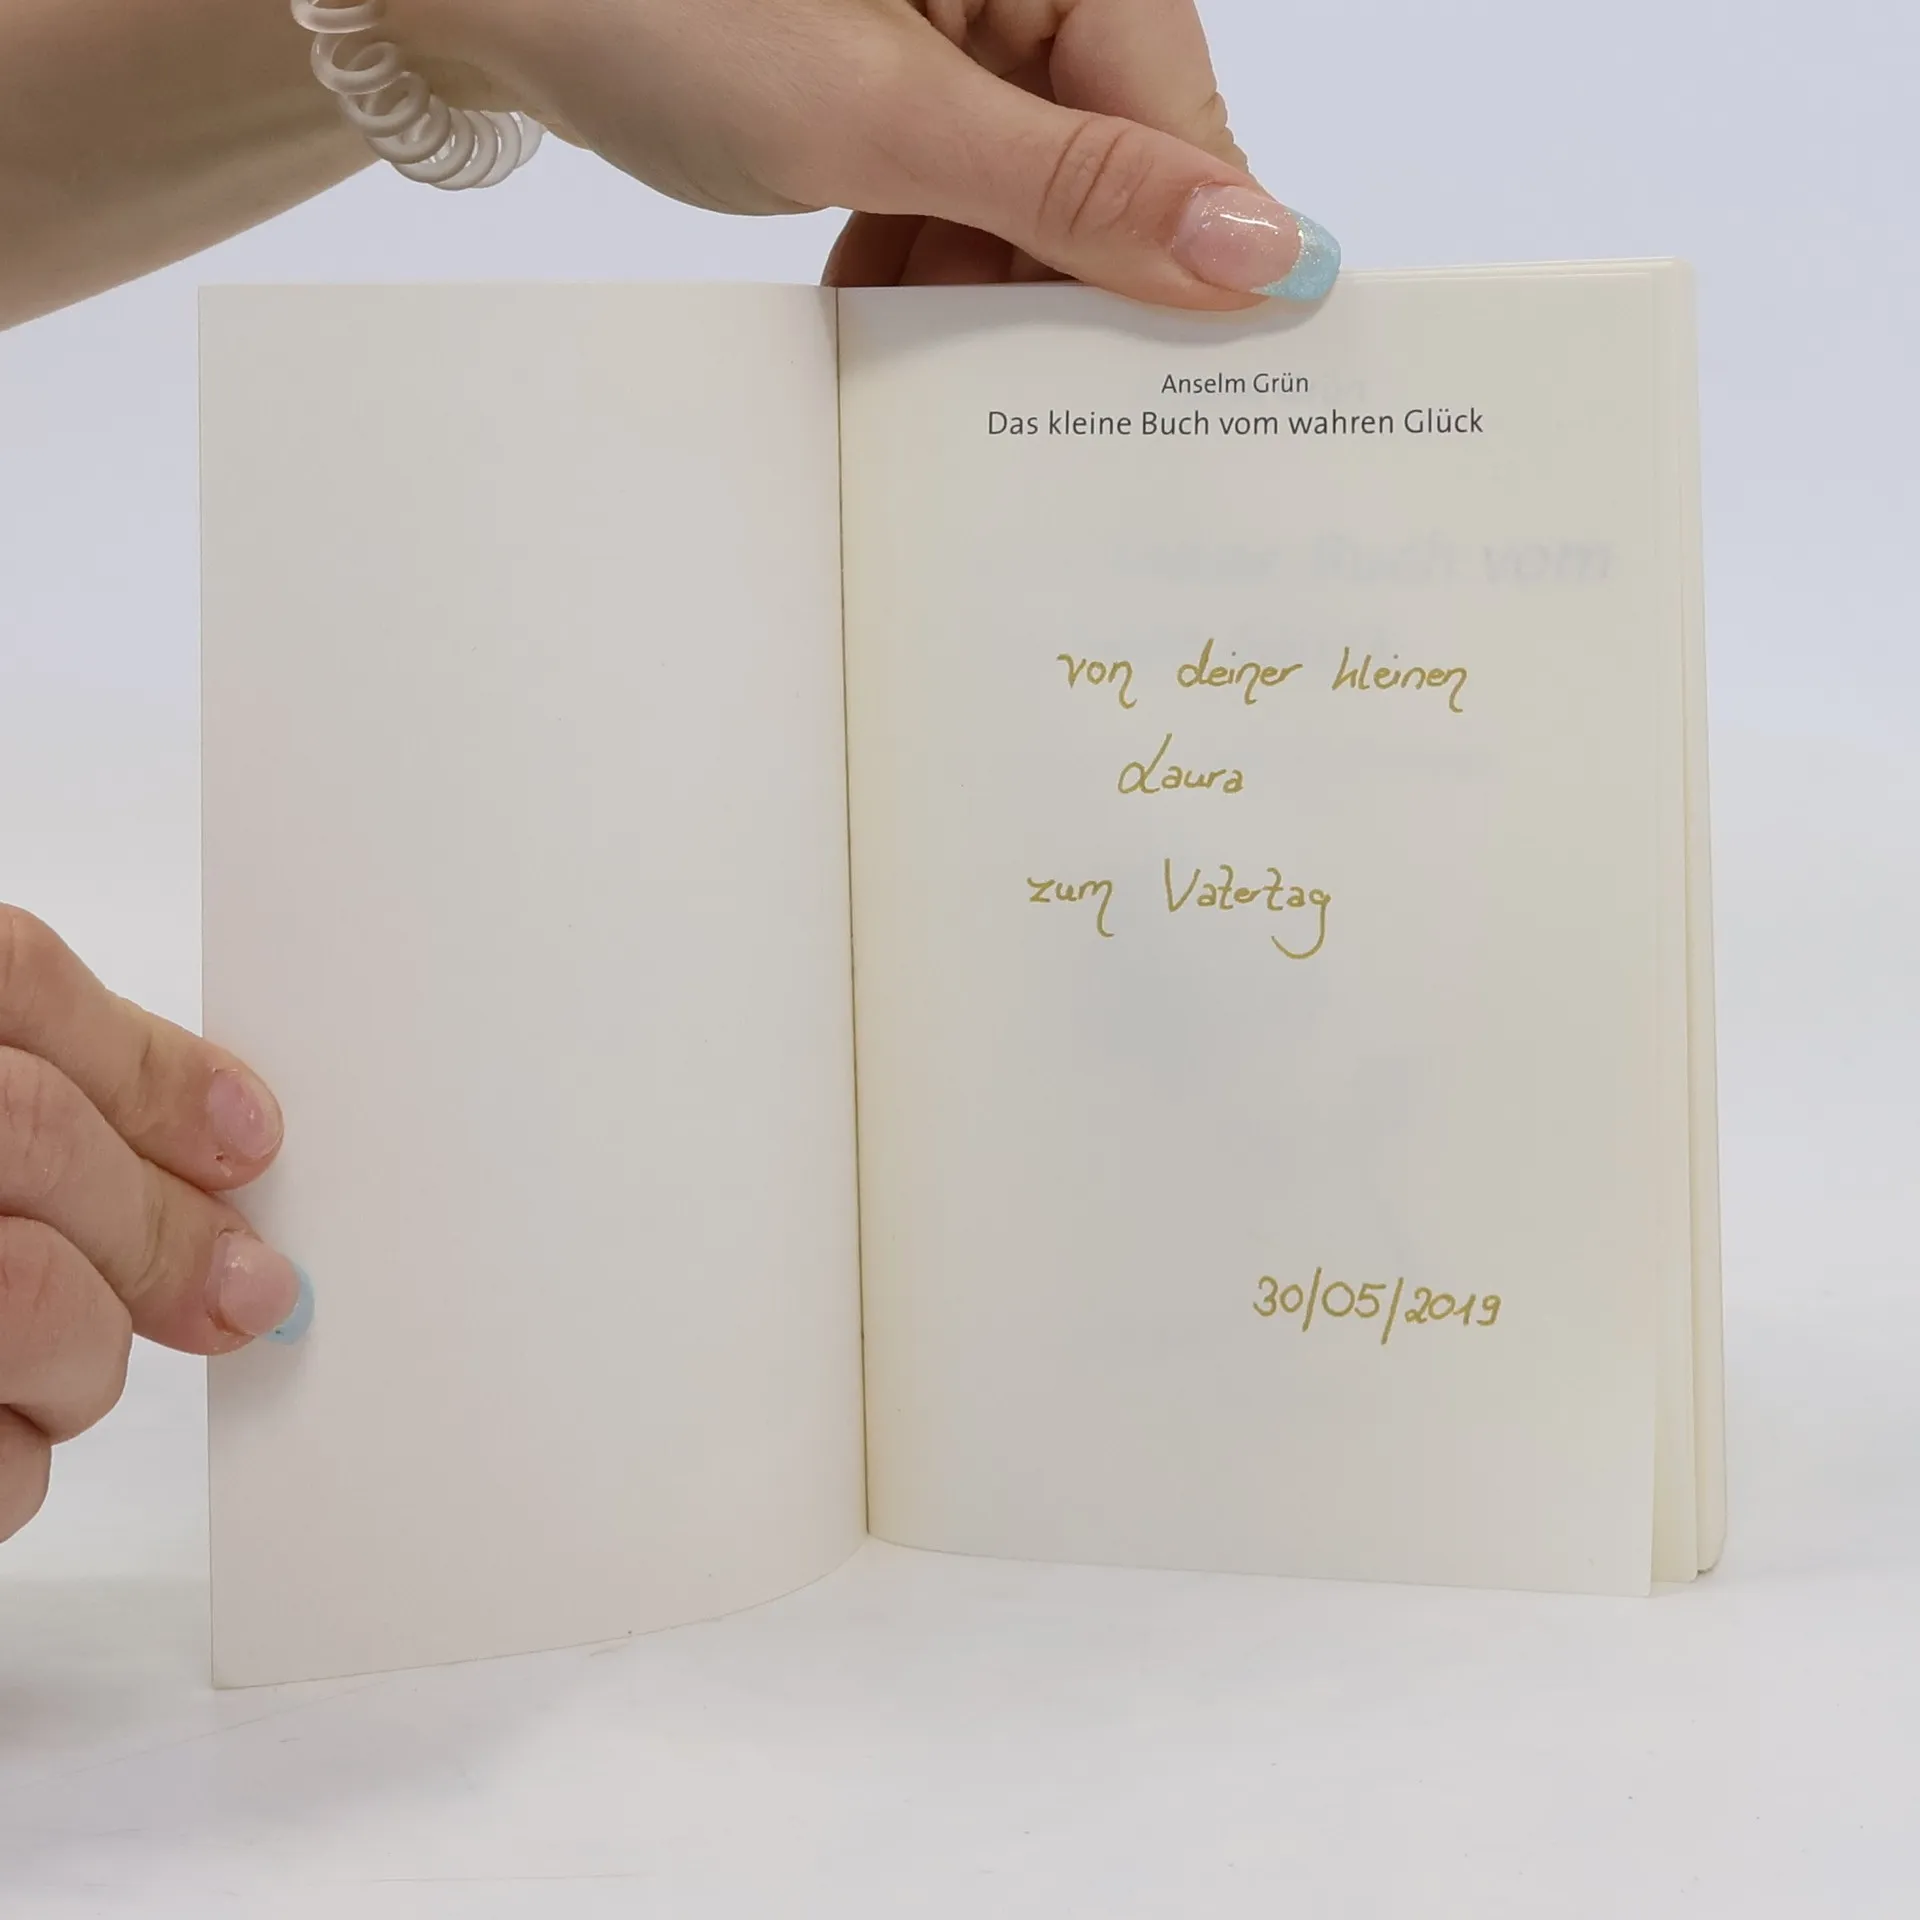 Anselm Grün
Das kleine Buch vom wahren Glück
von deiner kleinen
Laura
zum Vatertag
30/05/2019